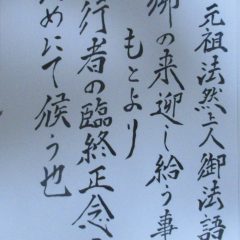 元祖法然上人御法語
御の来迎し給う事
もとより
行者の臨終正念の
ためにて候う也